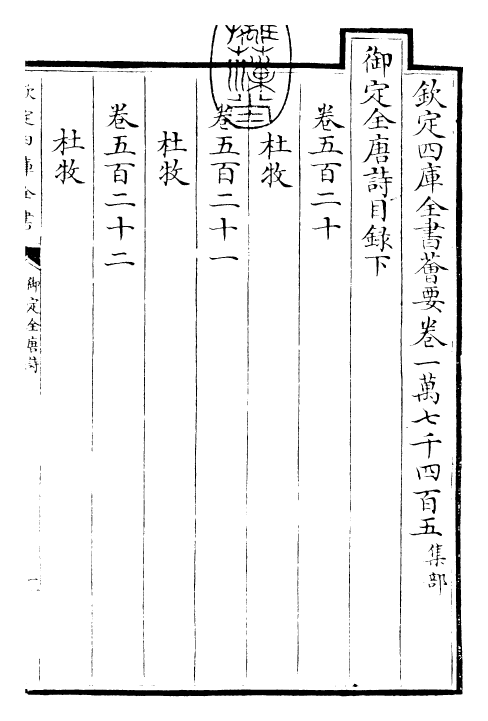 欽定四庫全書薈要卷一萬七千四百五集部
御定全唐詩目錄下
卷五百二十
杜牧
卷五百二十一
杜牧
卷五百二十二
杜牧
欽定四庫全書
御定全唐詩
一